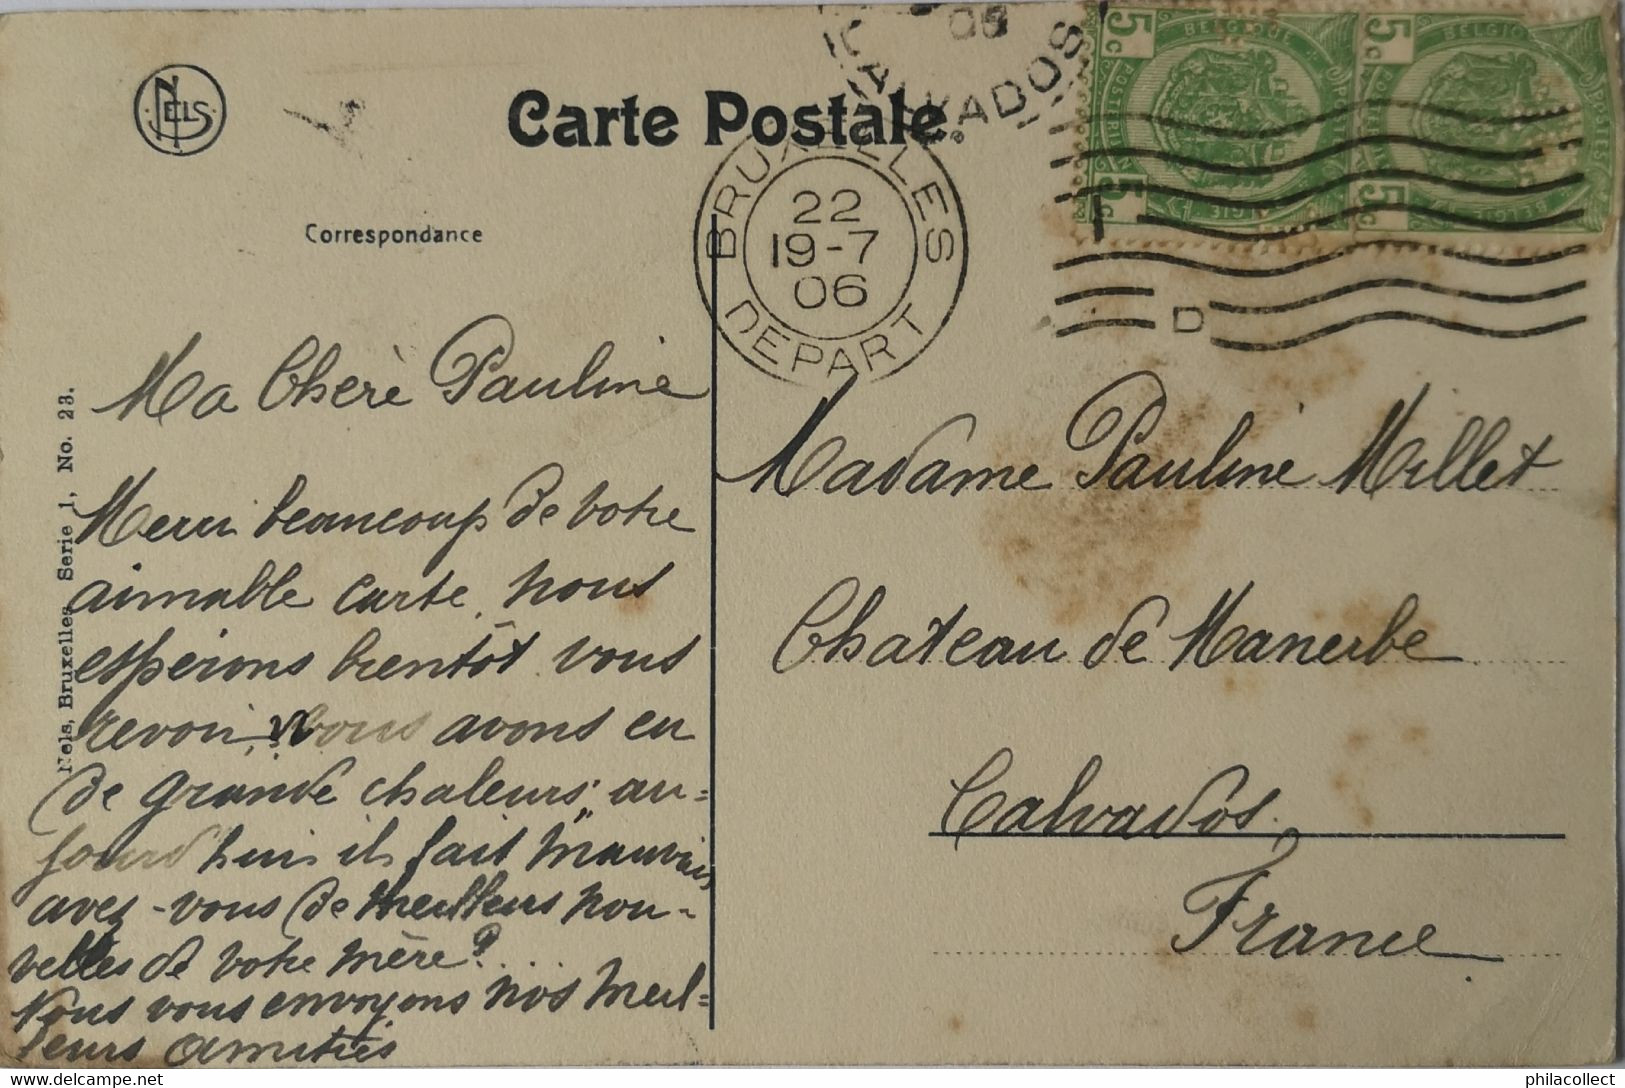 NELS
Carte Postale.
Correspondance
CALVADOS
06
BRUXELLES
22
19-7
06
DEPART
5c BELGIQUE 5c
5c BELGIQUE 5c
POSTES
D
Nels, Bruxelles Serie 1, No. 23.
Ma Chère Pauline
Merci beaucoup de votre
aimable carte, nous
espérons bientôt vous
revoir, nous avons eu
de grande chaleurs; au=
jourd'hui il fait mauvais
avez-vous de meilleurs nou-
velles de votre mère? ...
Nous vous envoyons nos meil=
leurs amitiés
Madame Pauline Millet
Château de Manerbe
Calvados.
France
philacollect